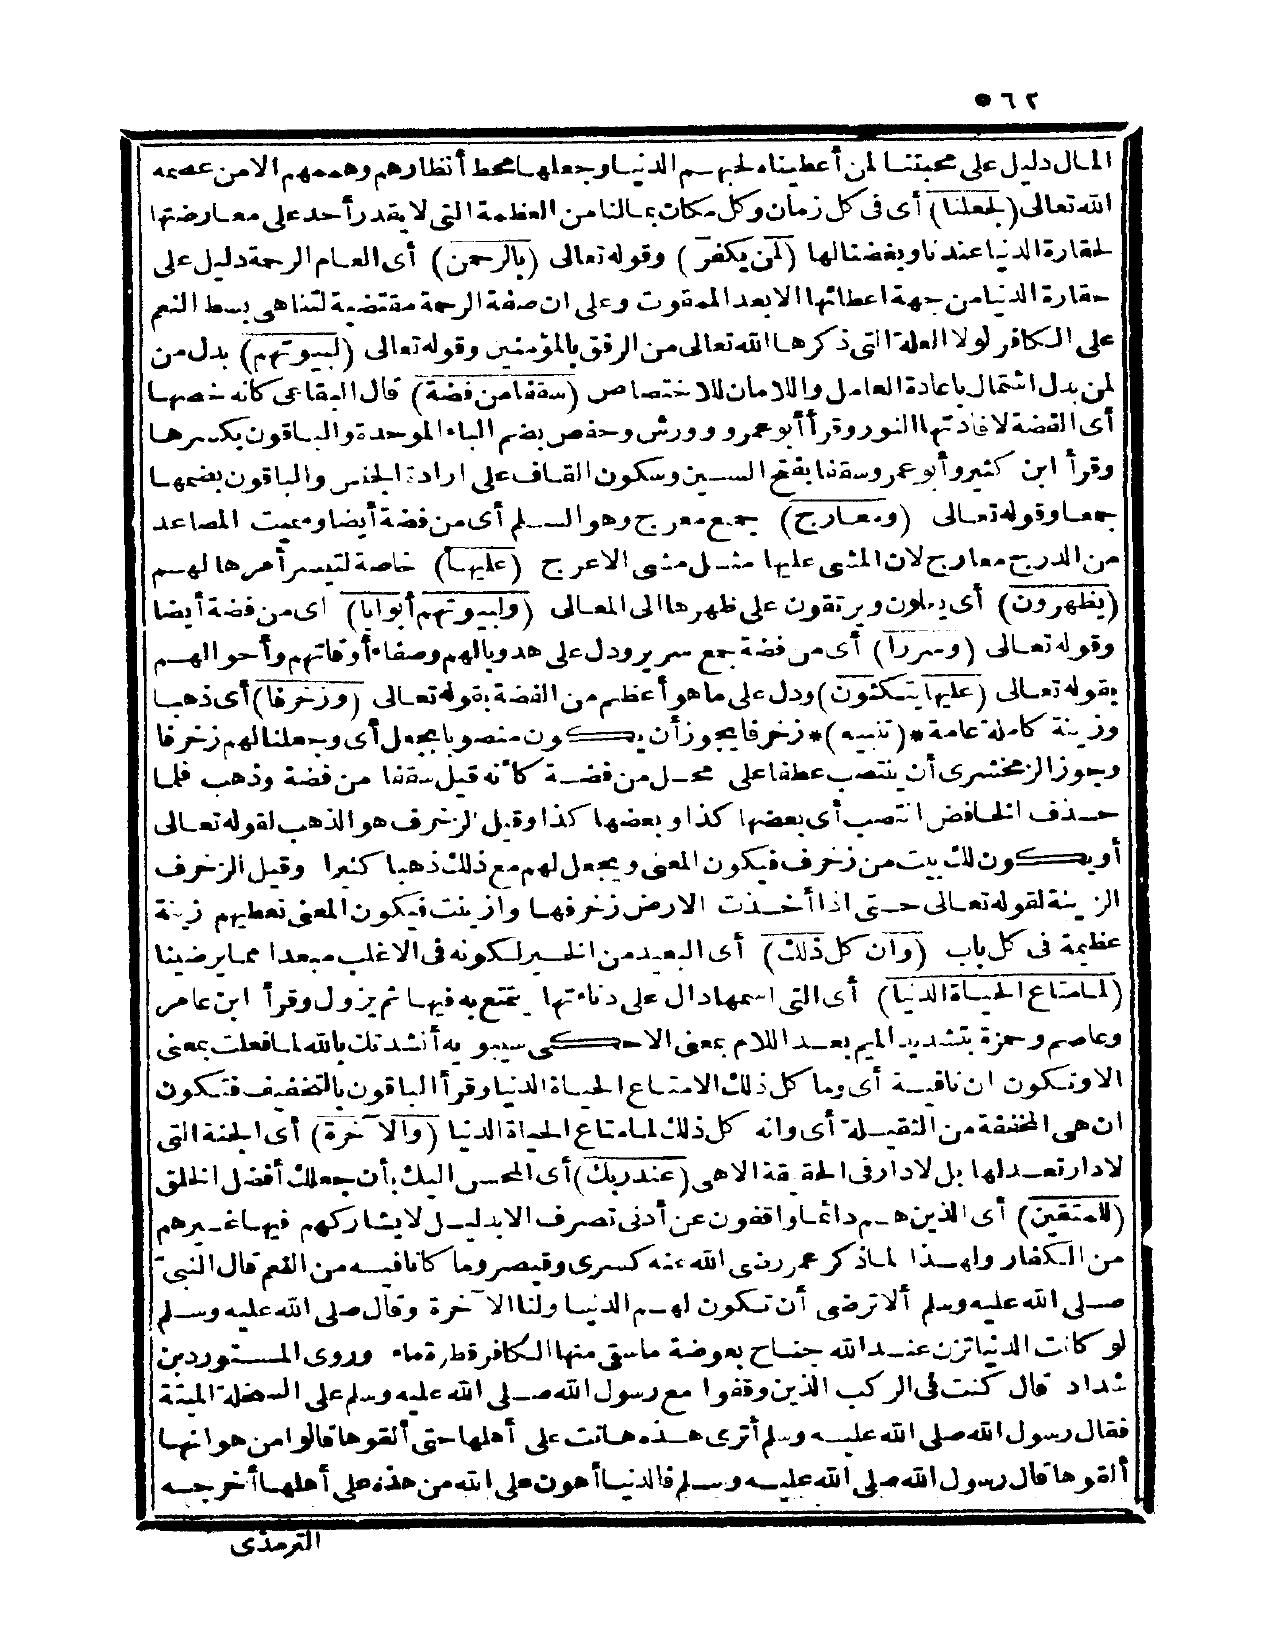 ٥٦٢
المال دليل على محبتنا لمن أعطيناه لحبهم الدنيا وجعلها محط أنظارهم وهممهم الا من عصمه
الله تعالى (لجعلنا) أى فى كل زمان وكل مكان بمالنا من العظمة التى لا يقدر أحد على معارضتها
لحقارة الدنيا عندنا وبغضنا لها (لمن يكفر) وقوله تعالى (بالرحمن) أى العام الرحمة دليل على
حقارة الدنيا من جهة اعطائها الابعد الممقوت وعلى ان صفة الرحمة مقتضية لتناهى بسط النعم
على الكافر لولا العلة التى ذكرها الله تعالى من الرفق بالمؤمنين وقوله تعالى (لبيوتهم) بدل من
لمن بدل اشتمال باعادة العامل واللامان للاختصاص (سقفا من فضة) قال البقاعى كانه خصها
أى الفضة لافادتها النور وقرأ أبو عمرو وورش وحفص بضم الباء الموحدة والباقون بكسرها
وقرأ ابن كثير وأبو عمر وسقفا بفتح السين وسكون القاف على ارادة الجنس والباقون بضمها
جمعا وقوله تعالى (ومعارج) جمع معرج وهو السلم أى من فضة أيضا وسميت المصاعد
من الدرج معارج لان المشى عليها مثل مشى الاعرج (عليها) خاصة لتيسر أمرها لهم
(يظهرون) أى يعلون ويرتقون على ظهرها الى المعالى (ولبيوتهم أبوابا) اى من فضة أيضا
وقوله تعالى (وسررا) أى من فضة جمع سرير ودل على هدو بالهم وصفاء أوقاتهم وأحوالهم
بقوله تعالى (عليها يتكئون) ودل على ما هو أعظم من الفضة بقوله تعالى (وزخرفا) أى ذهبا
وزينة كاملة عامة *(تنبيه)* زخرفا يجوز أن يكون منصوبا بجعل أى وجعلنا لهم زخرفا
وجوز الزمخشرى أن ينتصب عطفا على محل من فضة كأنه قيل سقفا من فضة وذهب فلما
حذف الخافض انتصب أى بعضها كذا وبعضها كذا وقيل الزخرف هو الذهب لقوله تعالى
أو يكون لك بيت من زخرف فيكون المعنى ويجعل لهم مع ذلك ذهبا كثيرا وقيل الزخرف
الزينة لقوله تعالى حتى اذا أخذت الارض زخرفها وازينت فيكون المعنى نعطيهم زينة
عظيمة فى كل باب (وان كل ذلك) أى البعيد من الخير لكونه فى الاغلب مبعدا مما يرضينا
(لما متاع الحياة الدنيا) أى التى اسمها دال على دناءتها يتمتع به فيها ثم يزول وقرأ ابن عامر
وعاصم وحمزة بتشديد الميم بعد اللام بمعنى الا حكى سيبويه أنشدتك بالله لما فعلت بمعنى
الا وتكون ان نافية أى وما كل ذلك الا متاع الحياة الدنيا وقرأ الباقون بالتخفيف فتكون
ان هى المخففة من الثقيلة أى وانه كل ذلك لما متاع الحياة الدنيا (والآخرة) أى الجنة التى
لا دار تعدلها بل لا دار فى الحقيقة الا هى (عند ربك) أى المحسن اليك بأن جعلك أفضل الخلق
(للمتقين) أى الذين هم دائما واقفون عن أدنى تصرف الا بدليل لا يشاركهم فيها غيرهم
من الكفار ولهذا لما ذكر عمر رضى الله عنه كسرى وقيصر وما كانا فيه من النعم قال النبى
صلى الله عليه وسلم ألا ترضى أن تكون لهم الدنيا ولنا الآخرة وقال صلى الله عليه وسلم
لو كانت الدنيا تزن عند الله جناح بعوضة ما سقى منها الكافر قطرة ماء وروى المستورد بن
شداد قال كنت فى الركب الذين وقفوا مع رسول الله صلى الله عليه وسلم على السخلة الميتة
فقال رسول الله صلى الله عليه وسلم أترى هذه هانت على أهلها حتى ألقوها قالوا من هوانها
ألقوها قال رسول الله صلى الله عليه وسلم فالدنيا أهون على الله من هذه على أهلها أخرجه
الترمذى